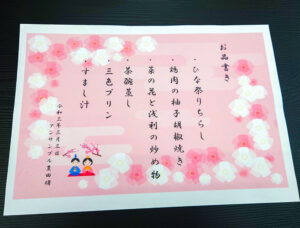 お品書き
・ひな祭りちらし
・鶏肉の柚子胡椒焼き
・菜の花と浅利の炒め物
・茶碗蒸し
・三色プリン
・すまし汁
令和三年三月三日
アンサンブル豊田頃